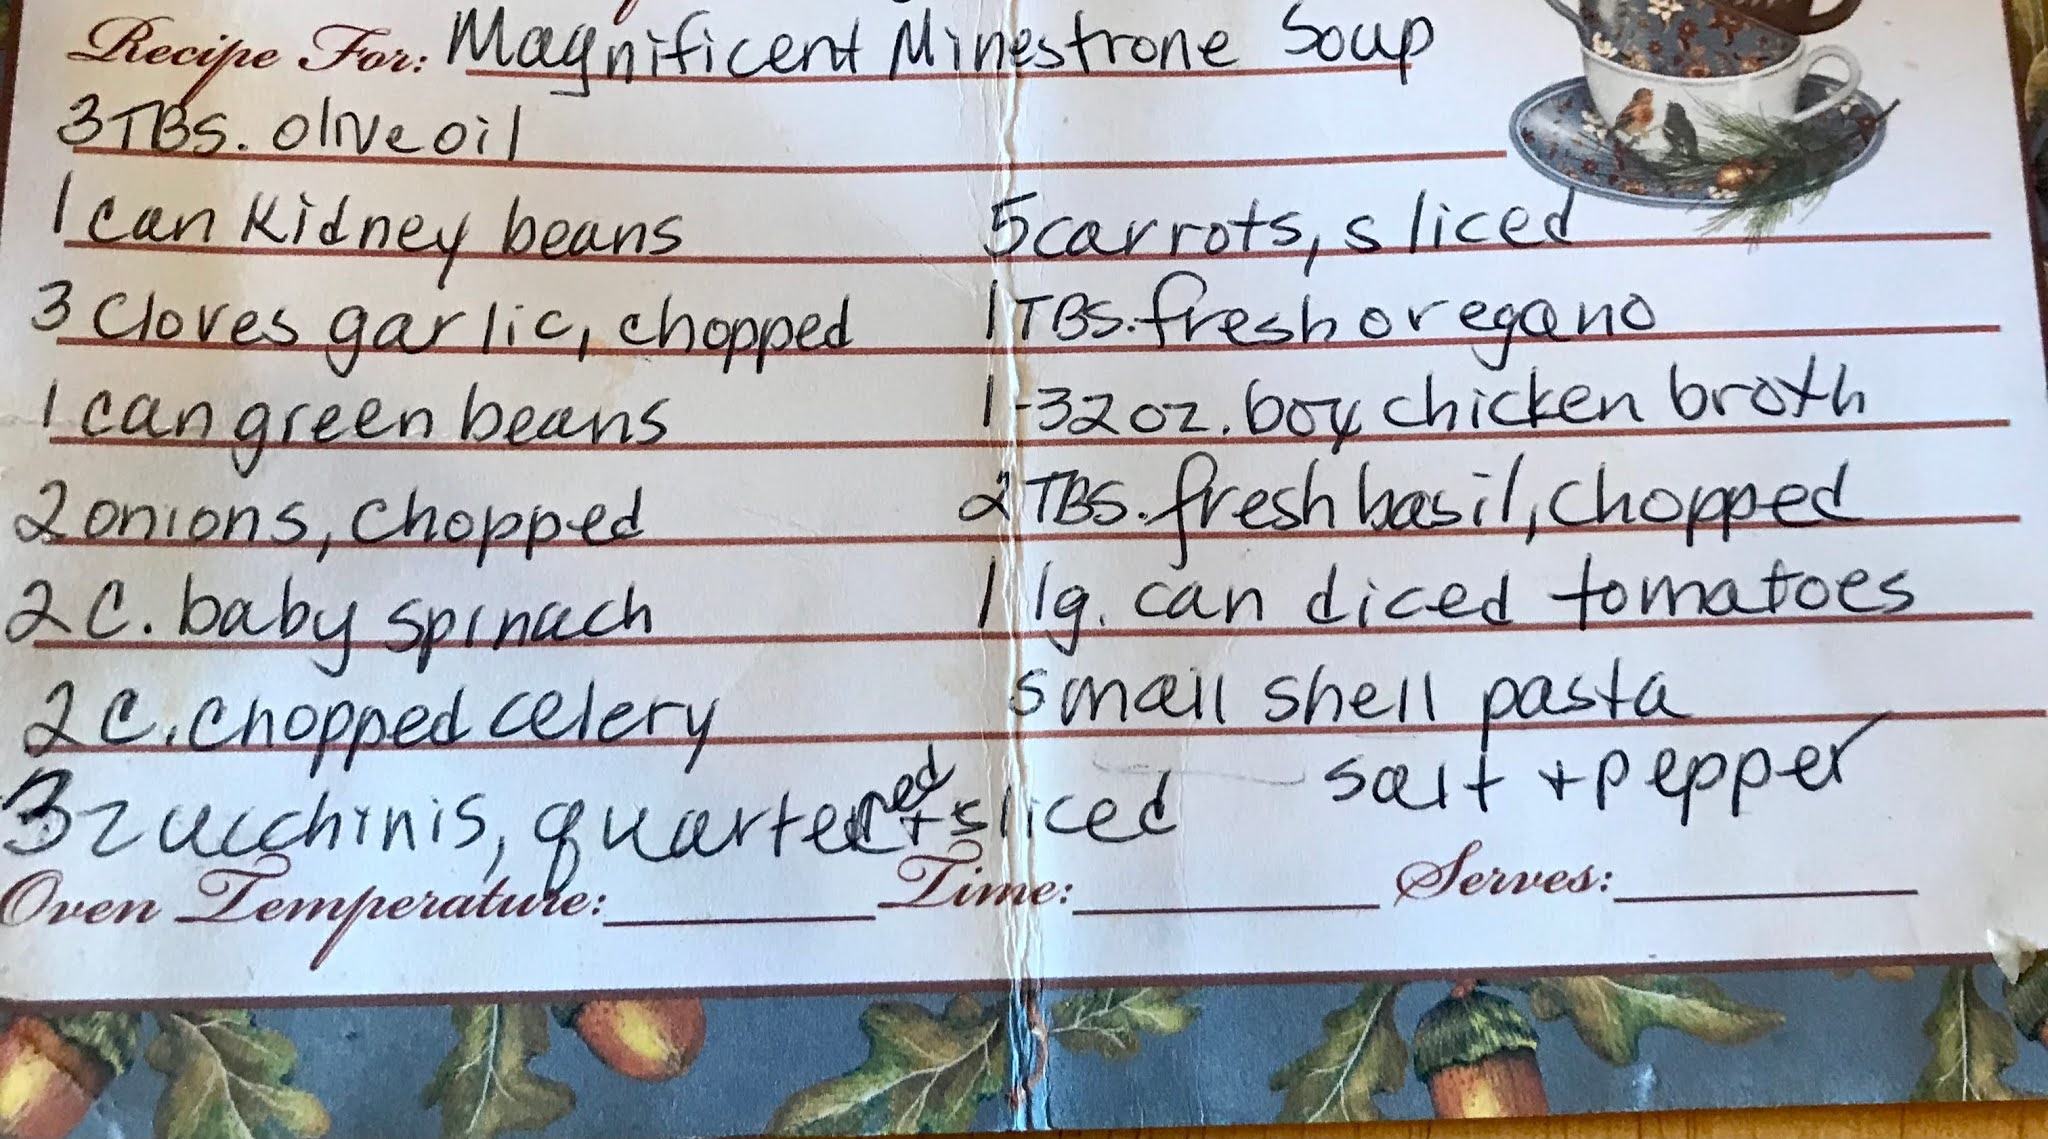 Recipe For: Magnificent Minestrone Soup
3 TBS. olive oil
1 can kidney beans
5 carrots, sliced
3 cloves garlic, chopped
1 TBS. fresh oregano
1 can green beans
1-32 oz. box chicken broth
2 onions, chopped
2 TBS. fresh basil, chopped
2 C. baby spinach
1 lg. can diced tomatoes
2 C. chopped celery
small shell pasta
3 zucchinis, quartered + sliced
salt + pepper
Oven Temperature: Time: Serves: